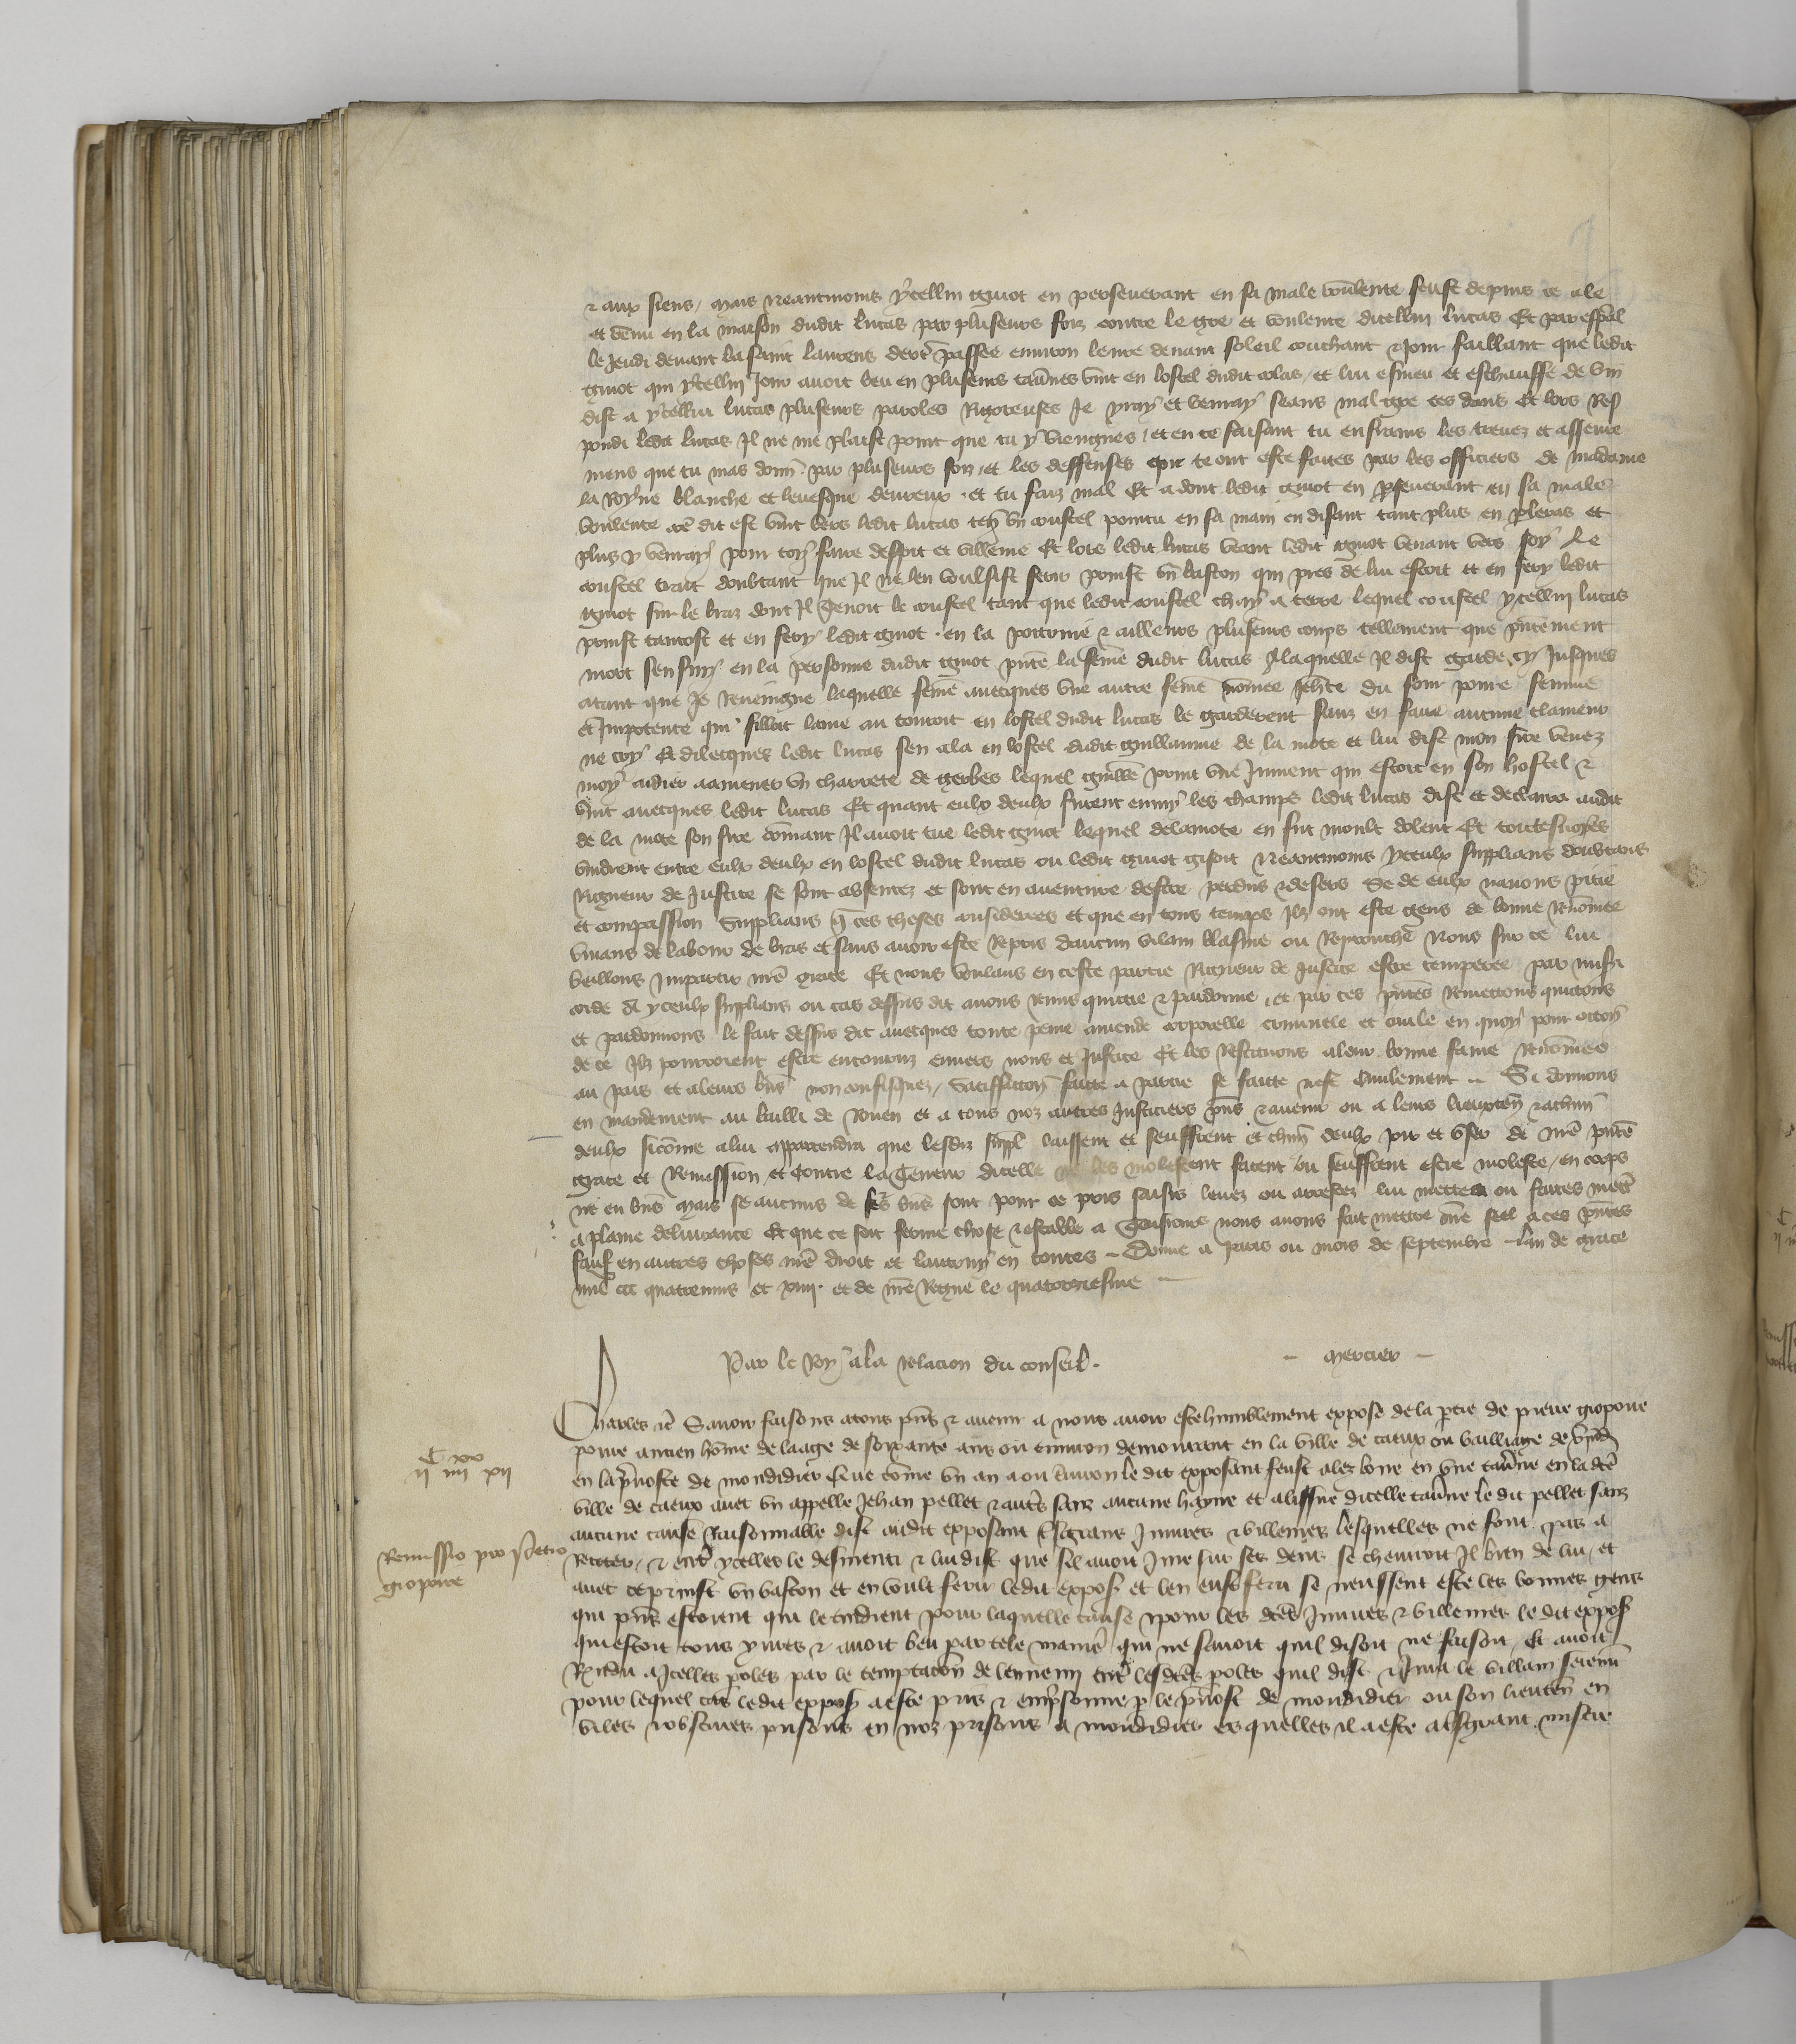 & aux siens, mais neantmoins ycellui Guiot en perseverant en sa male voulente feust depuis ce ale
et venu en la maison dudit Lucas par pluseurs foiz contre le gre et voulente dicellui Lucas Et par espãl
le Jeudi devant la saint Laurens derr passee environ leure devant soleil couchant & Jour faillant que ledit
Guiot qui ycellui Jour avoit beu en pluseurs tavnes vint en lostel dudit Colas, et lui esmeu et eschauffe de vin
dist a ycellui Lucas pluseurs paroles Rigoreuses Je yray et venray seans mal gre tes dens Et lors Res
pondi ledit Lucas Il ne me plaist point que tu y viengnes, et en ce faisant tu enfrains les treuez et asseure
mens que tu mas donn par pluseurs foiz, et les deffenses qui te ont este faites par les officiers de madame
la Royne blanche et levesque devreux. et tu faiz mal Et a dont ledit Guiot en pseverant en sa male
voulente cõe dit est vint vers ledit Lucas ten vn coustel pointu en sa main en disant tant plus en pleras et
plus y venray pour toy faire despit et villenie Et lors ledit Lucas veant ledit Guiot venant vers soy Le
coustel trait doubtant que Il ne len voulsist ferir prinst vn baston qui pres de lui estoit et en fery ledit
Guiot sur le braz dont Il Tenoit le coustel tant que ledit coustel chay a terre lequel coustel ycellui Lucas
prinst tantost et en fery ledit Guiot. en la poitrine & ailleurs pluseurs coups tellement que pñtement
mort sensuy en la personne dudit Guiot pñte la feme dudit Lucas A laquelle Il dist garde cy Jusques
atant que Je Reviengne laquelle feme avecques vne autre feme nõmee Jehñe du four povre femme
et Impotente qui filloit laine au touroit en lostel dudit Lucas le garderent sanz en faire aucune clameur
ne cry Et dilecques ledit Lucas sen ala en lostel dudit Guillaume de la mote et lui dist mon sire venez
moy aidier a amener vn charrete de gerbes lequel Guille print vne Jument qui estoit en son hostel &
vint avecques ledit Lucas Et quant eulx deulx furent enmy les champs ledit Lucas dist et declaira audit
de la mote son sire cõmant Il avoit tue ledit Guiot lequel delamote en fut moult dolent Et toutesvoyes
vindrent entre eulx deulx en lostel dudit Lucas ou ledit Guiot gisoit neantmoins yceulx supplians doubtans
Rigueur de Justice se sont absentez et sont en aventure destre perdus & desers Se de eulx navons pitie
et compassion Supplians q̃ ces choses considerees et que en tous temps Ilz ont este gens de bonne Renõmee
vivans de labour de bras et sans avoir este Repris daucun vilain blasme ou Reprouche Nous sur ce lui
veillons Impartir nr̃e grace Et nous voulans en ceste partie Rigueur de Justice estre temperee par miseri
corde A yceulx supplians ou cas dessus dit avons Remis quictie & pardonne, et par ces pñtes Remettons quictons
et pardonnons le fait dessus dit avecques toute peine amende corporelle criminele et civile en quoy pour occoy
de ce Ilz pourroient estre encouruz envers nous et Justice Et les Restituons a leur bonne fame Renõmee
au pais et a leurs bñs non confisquez, Satisffaccon faicte a partie se faicte nest Civilement .. Si donnons
en mandement au bailli de Rouen et a tous noz autres Justiciers pñs & avenir ou a leurs lieuxteñ & a chun
deulx sicõme a lui appartendra que lesdiz suppl laissent et seuffrent et chun deulx joir et vser de nr̃e pñte
grace et Remission, et Contre la Teneur dicelle ne les molestent facent ou seuffrent estre moleste, en corps
ne en bñs Mais se aucuns de ses bñs sont pour ce prins saisis levez ou arrestez lui mettent ou facent mett
a plaine delivrance Et que ce soit ferme chose & estable a Tousiours nous avons fait mettre nr̃e seel a ces pñtes
sauf en autres choses nr̃e droit et lautruy en toutes - Donne a Paris ou mois de septembre lan de grace
mil ccc quatrevins et xiiij. et de nr̃e Regne le quatorziesme
Par le Roy a la Relacion du conseil. - Mercier -
Charles &c̃ Savoir faisons atous pñs & avenir a nous avoir este humblement expose de la ptie de pierre gropoire
povre ancien hõme de laage de soixante ans ou environ demourant en la ville de caieux ou bailliage de Vermñd
en la pvoste de mondidier Que cõme vn an a ou environ le dit exposant feust alez boire en vne tavne en la dce
ville de caieux avec vn appelle Jehan pellet & autrs sanz aucune hayne et a lissue dicelle tavne le dit pellet sanz
aucune cause Raisonnable dist audit exposant tresgrans Injures & villenies lesquelles ne sont pas a
Reciter, & entr ycelles le desmenti & lui dist que sil avoit Jure sur ses dens se chevroit Il bien de lui, et
avec ce prinst vn baston et en voult ferir ledit expos et len eust feru se neussent este les bonnes gens
qui pñs estoient qui le tindrent pour laquelle cause & pour les dces Injures & villenies le dit expos
qui estoit tous yvres & avoit beu par tele manie qui ne savoit quil disoit ne faisoit, Et avoit
Rendu a Icelles poles par le temptacon de lennemi entr lesdces poles quil dist & Jura le villain serem
pour lequel cas ledit expos a este pris & emprisonne p le pvost de mondidier ou son lieuteñ en
viles & obscures prisons en noz prisons a mondidier es quelles il a este a tsgrant misere
C xx
ij iiij xij
Remissio pro Petro
gropoire